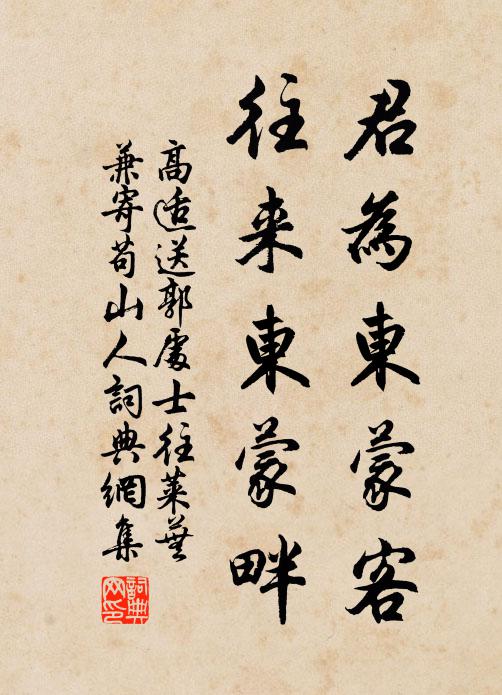 君為東蒙客
往来東蒙畔
高適送郭處士往萊蕪
兼寄苟山人詞典網集
詞典網印